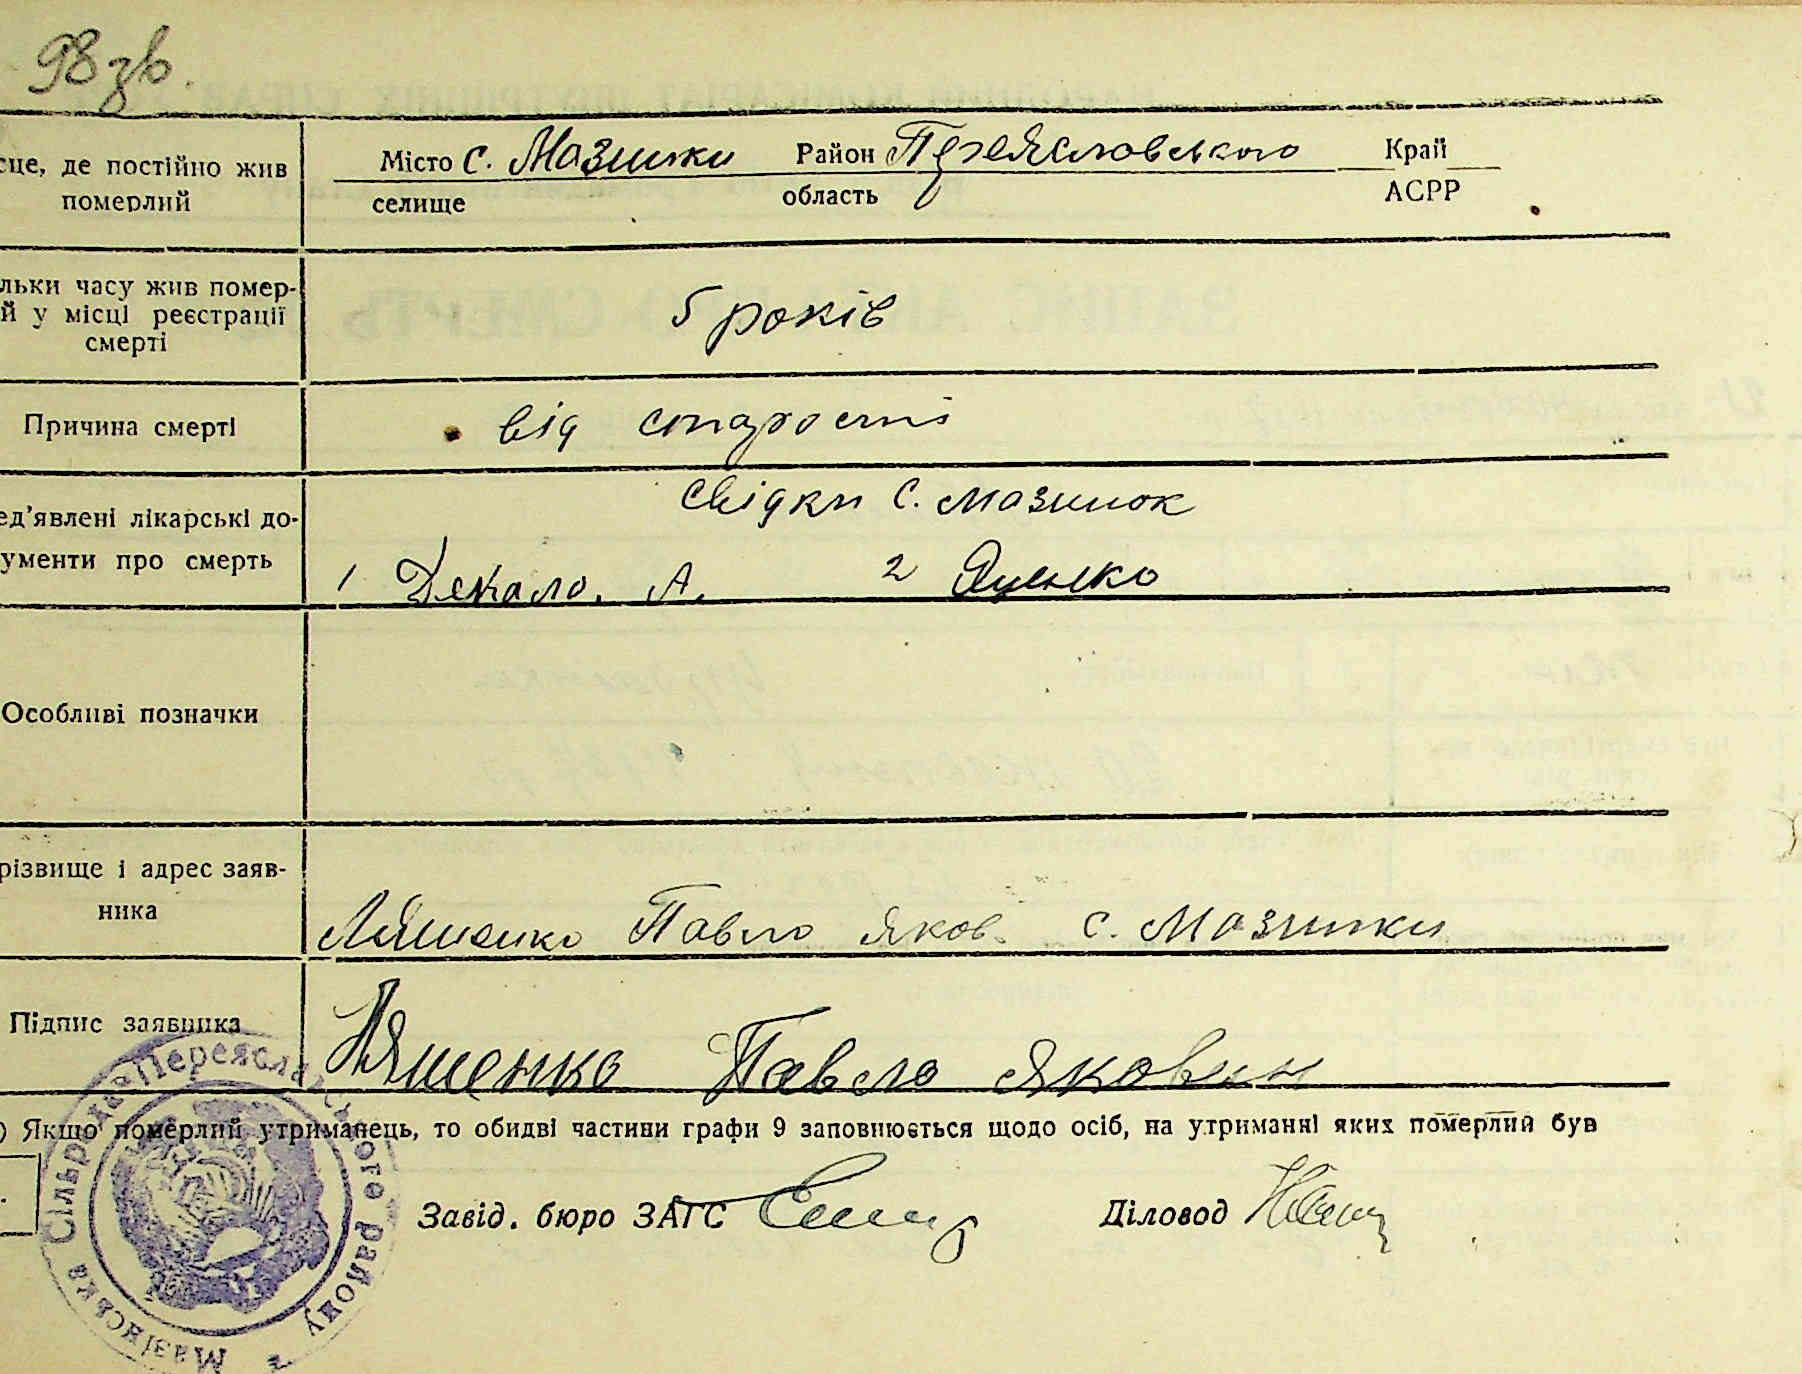 98 зв.
сце, де постійно жив
померлий
Місто с. Мазинки Район Переяславського Край
селище область АСРР
льки часу жив помер-
й у місці реєстрації
смерті
5 років
Причина смерті
від старости
ед'явлені лікарські до-
ументи про смерть
свідки с. Мазинок
1 Декало. А. 2 Яценко
Особливі позначки
різвище і адрес заяв-
ника
Ляшенко Павло Яков. с. Мазинки
Підпис заявника
Ляшенко Павло Якович
) Якщо померлий утриманець, то обидві частини графи 9 заповнюється щодо осіб, на утриманні яких померлий був
Завід. бюро ЗАГС Діловод
Мазінська Сільрада Переяславського району